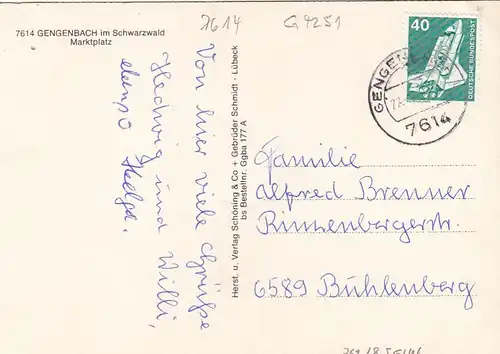 7614 GENGENBACH im Schwarzwald
Marktplatz
7614
G 4251
Von hier viele Grüße
Hedwig und Willi,
Helga.
Herst. u. Verlag Schöning & Co + Gebrüder Schmidt - Lübeck
bs Bestellnr. Ggba 177 A
40
DEUTSCHE BUNDESPOST
7614
Familie
Alfred Brenner
Rinzenbergerstr.
6589 Bühlenberg